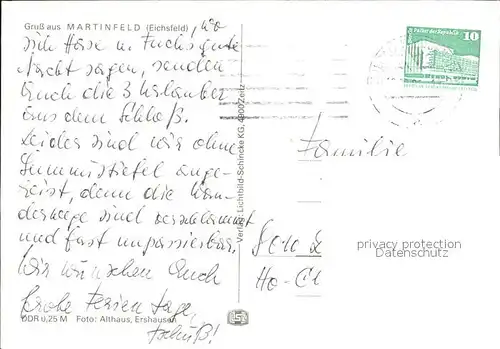 Gruß aus MARTINFELD (Eichsfeld), wo
sich Hase u. Fuchs gute
Nacht sagen, senden
Euch die 3 Urlauber
aus dem Schloß.
Leider sind wir ohne
Gummistiefel ange-
reist, denn die Wan-
derwege sind verschlammt
und fast unpassierbar.
Wir wünschen Euch
frohe Ferientage,
Tschüß!
DDR 0,25 M Foto: Althaus, Ershausen
Verlag: Lichtbild-Schincke KG, 4900 Zeitz
Palast der Republik
10
Familie
Ho-Ch
privacy protection
Datenschutz